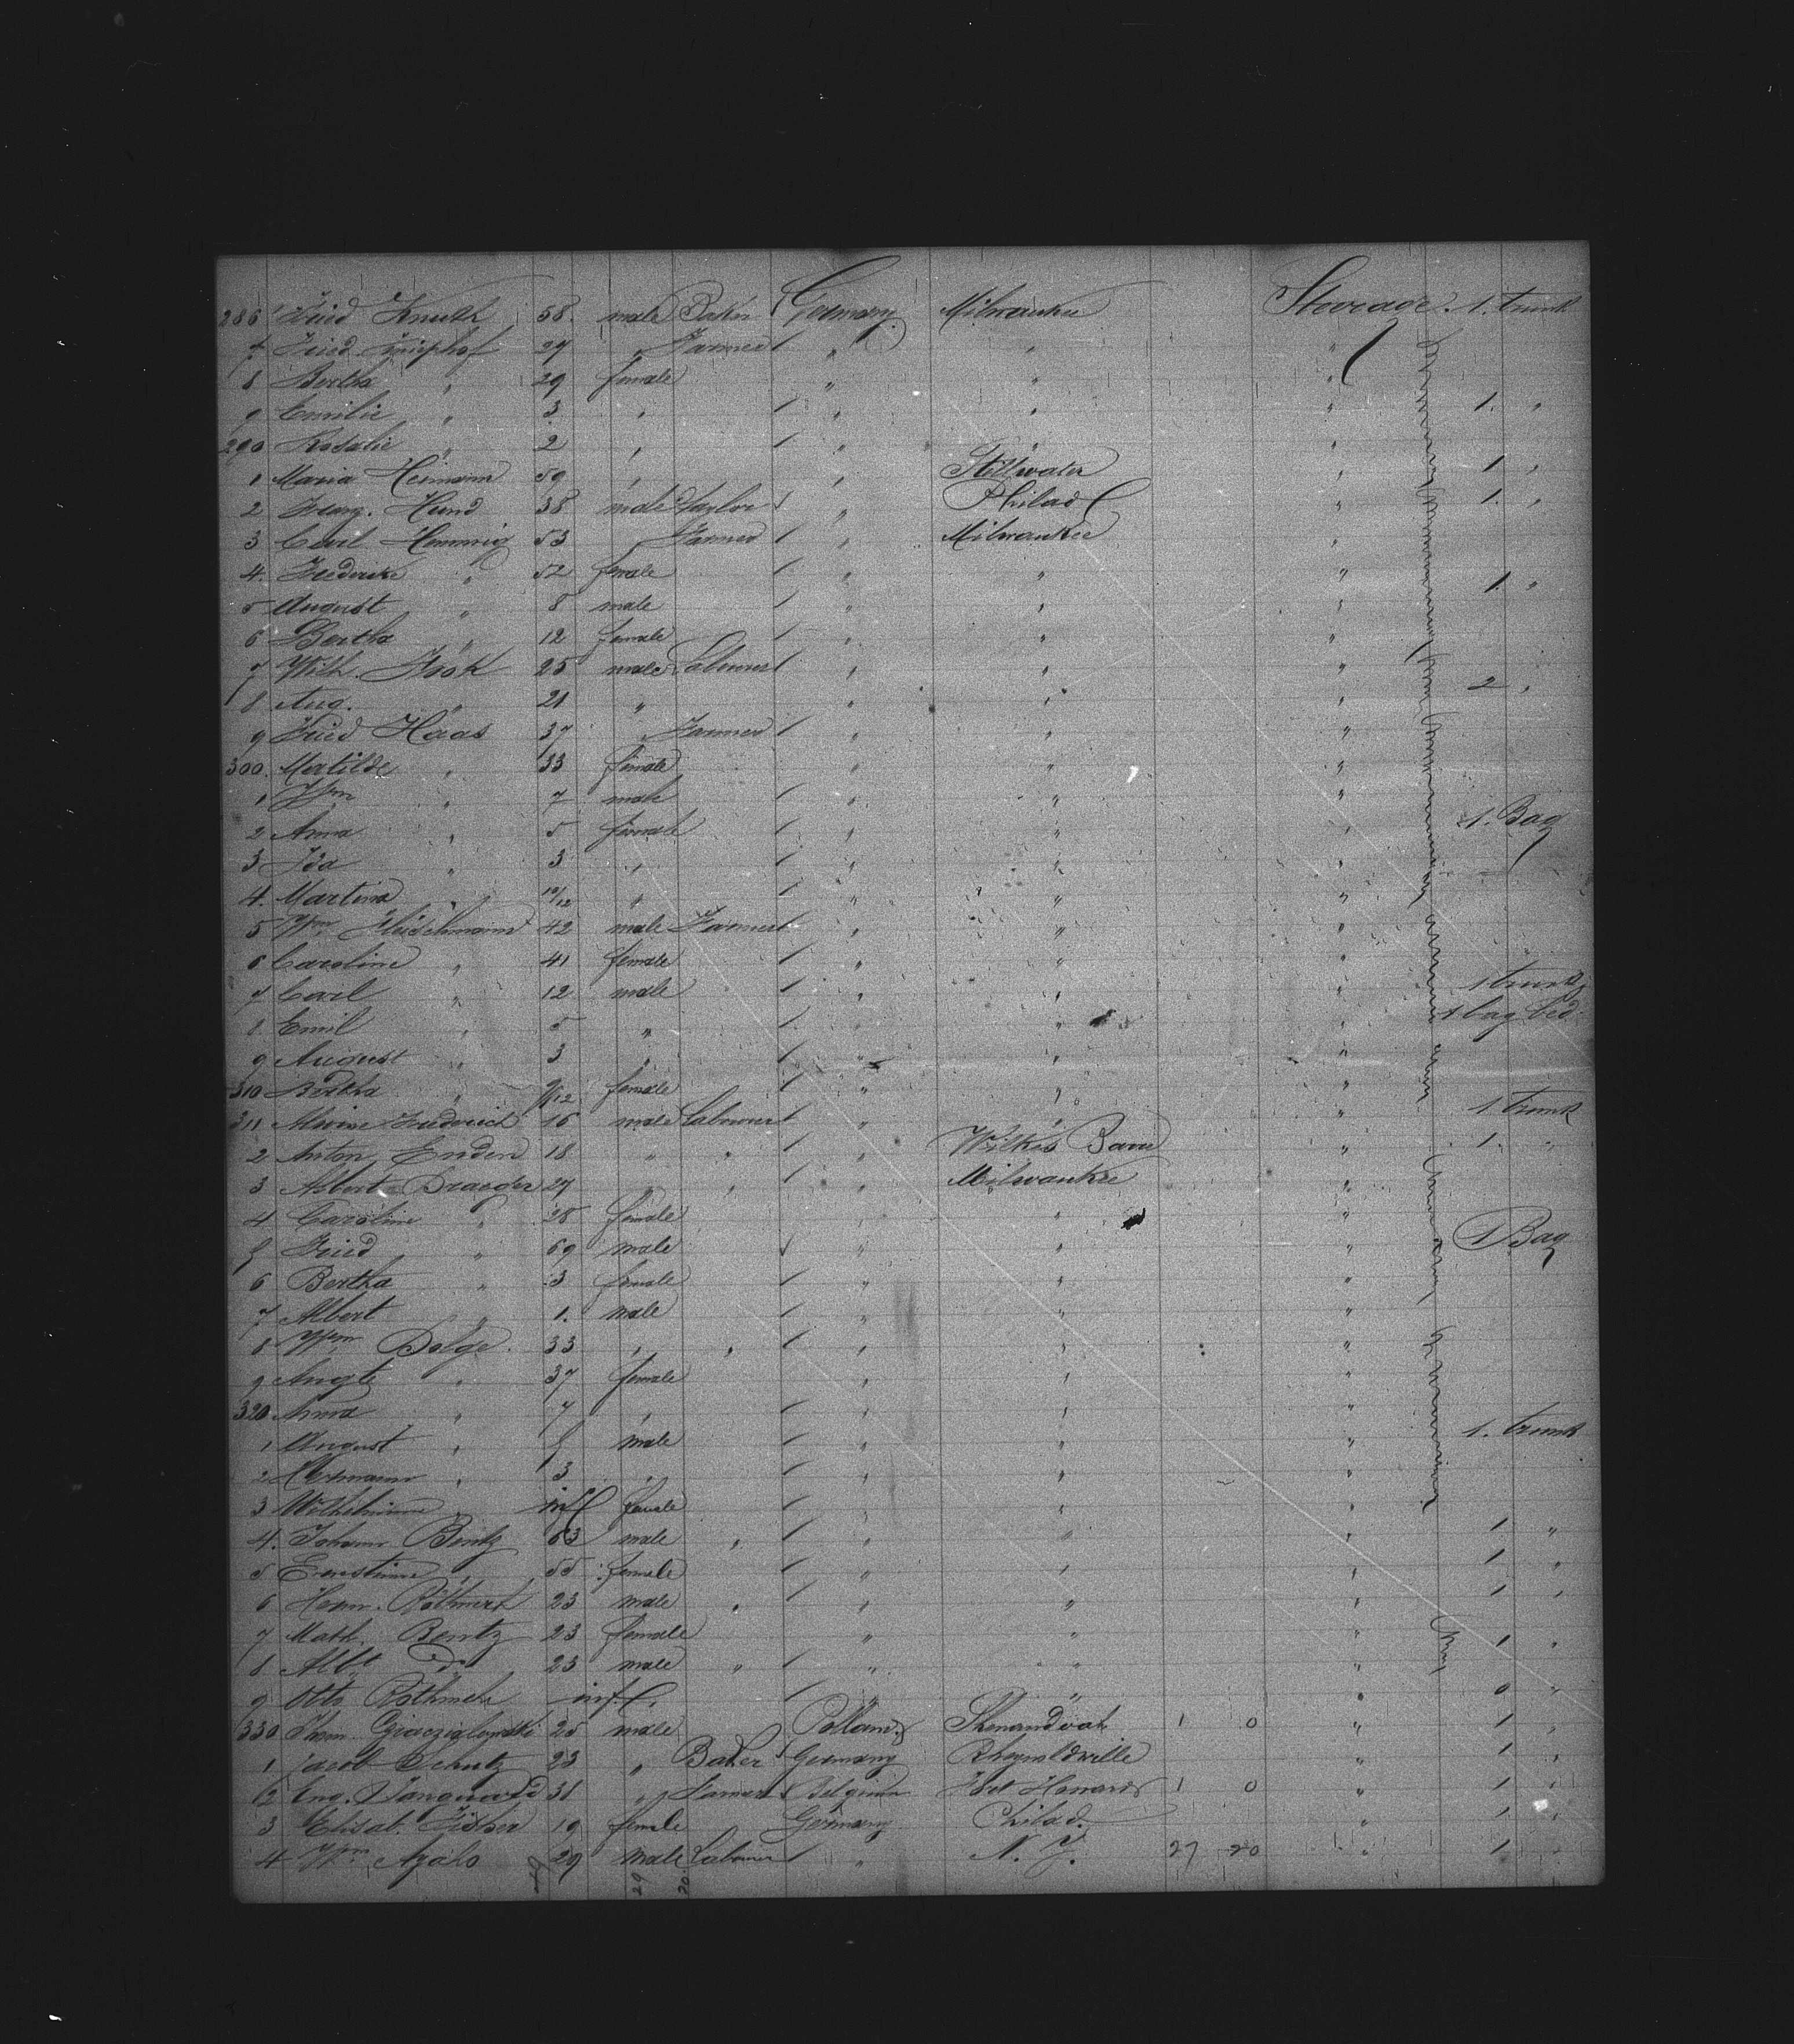 286 Fried Knuth 58. male Baker Germany Milwaukee Steerage. 1. trunk
7 Fried Kniephof 27 " Farmer " " "
8 Bertha " 29 female " " "
9 Emilie " 3 " " " " 1. "
290 Rosalie " 2 " " " "
1 Maria Heimann 59 " " Stillwater " 1 "
2 Franz. Hund 38 male Taylor " Philad " 1. "
3 Carl Hemmrig 53 " Farmer " Milwaukee "
4. Frederike " 52 female " " " 1. "
5 August " 8 male " " "
6 Bertha " 12 female " " "
7 Wilh. 25 male Labourer " " "
8 Aug. " 21 " " " " 2 "
9 Fried Haas 37 " Farmer " " "
300. Matilde " 33 female " " "
1 Wm " 7 male " " "
2 Anna " 5 female " " " 1. Bag
3 Ida " 3 " " " "
4. Martina " 10/12 " " " "
5 Wm Fleischmann 42 male Farmer " " "
6 Caroline " 41 female " " "
7 Carl " 12 male " " " 1 trunk
8 Emil " 5 " " " " 1 bag bed
9 August " 3 " " " "
310 Bertha " 9/12 female " " "
311 Friedrich 16 male Labourer " " " 1 trunk
2 Anton Enden 18 " " " Wilkes Barre " 1. "
3 Albert Draeger 27 " " " Milwaukee "
4 Caroline " 28 female " " "
5 Fried " 69 male " " " 1 Bag
6 Bertha " 3 female " " "
7 Albert " 1. male " " "
8 Wm Dolge. 33 " " " " "
9 Augte " 37 female " " "
320 Anna " 7 " " " "
1 August " 5 male " " " 1. trunk
2 Hermann " 3 " " " "
3 Wilhelmine " inf female " " "
4. Johann Bentz 63 male " " " " 1 "
5 Ernestine " 55 female " " " 1 "
6 Herm. 23 male " " " " 1 "
7 Math. Bentz 23 female " " " 1 "
8 Albt do 23 male " " " "
9 Otto inf. " " " 0 "
330 25 male Polland Shenandoah 1 0 " 1 "
1 Jacob Schutz 23 " Baker Germany Rheynoldville " 1 "
2 Eug. 31 " Farmer Belgium 1 0 " 1 "
3 Elisab. Fisher 19 female Germany Philad. " 1 "
4 Wm 29 male Labourer " N. Y. 27 20 " 1 "
29 20